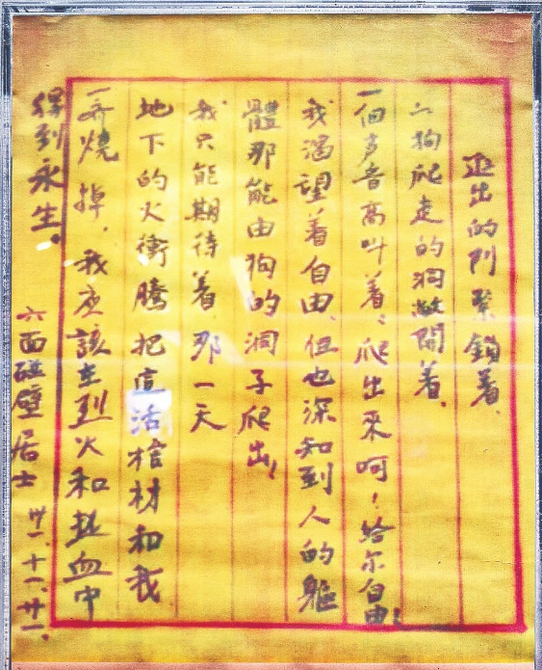 出的门緊鎖着.
狗爬走的洞敞開着.
一個声音高叫着:爬出來呵!給尔自由!
我渴望着自由,但也深知到人的軀
體那能由狗的洞子爬出!
我只能期待着,那一天
地下的火衝騰,把這活棺材和我
一齊燒掉,我应該在烈火和热血中
得到永生。
六面碰壁居士 卅一.十一.廿一.